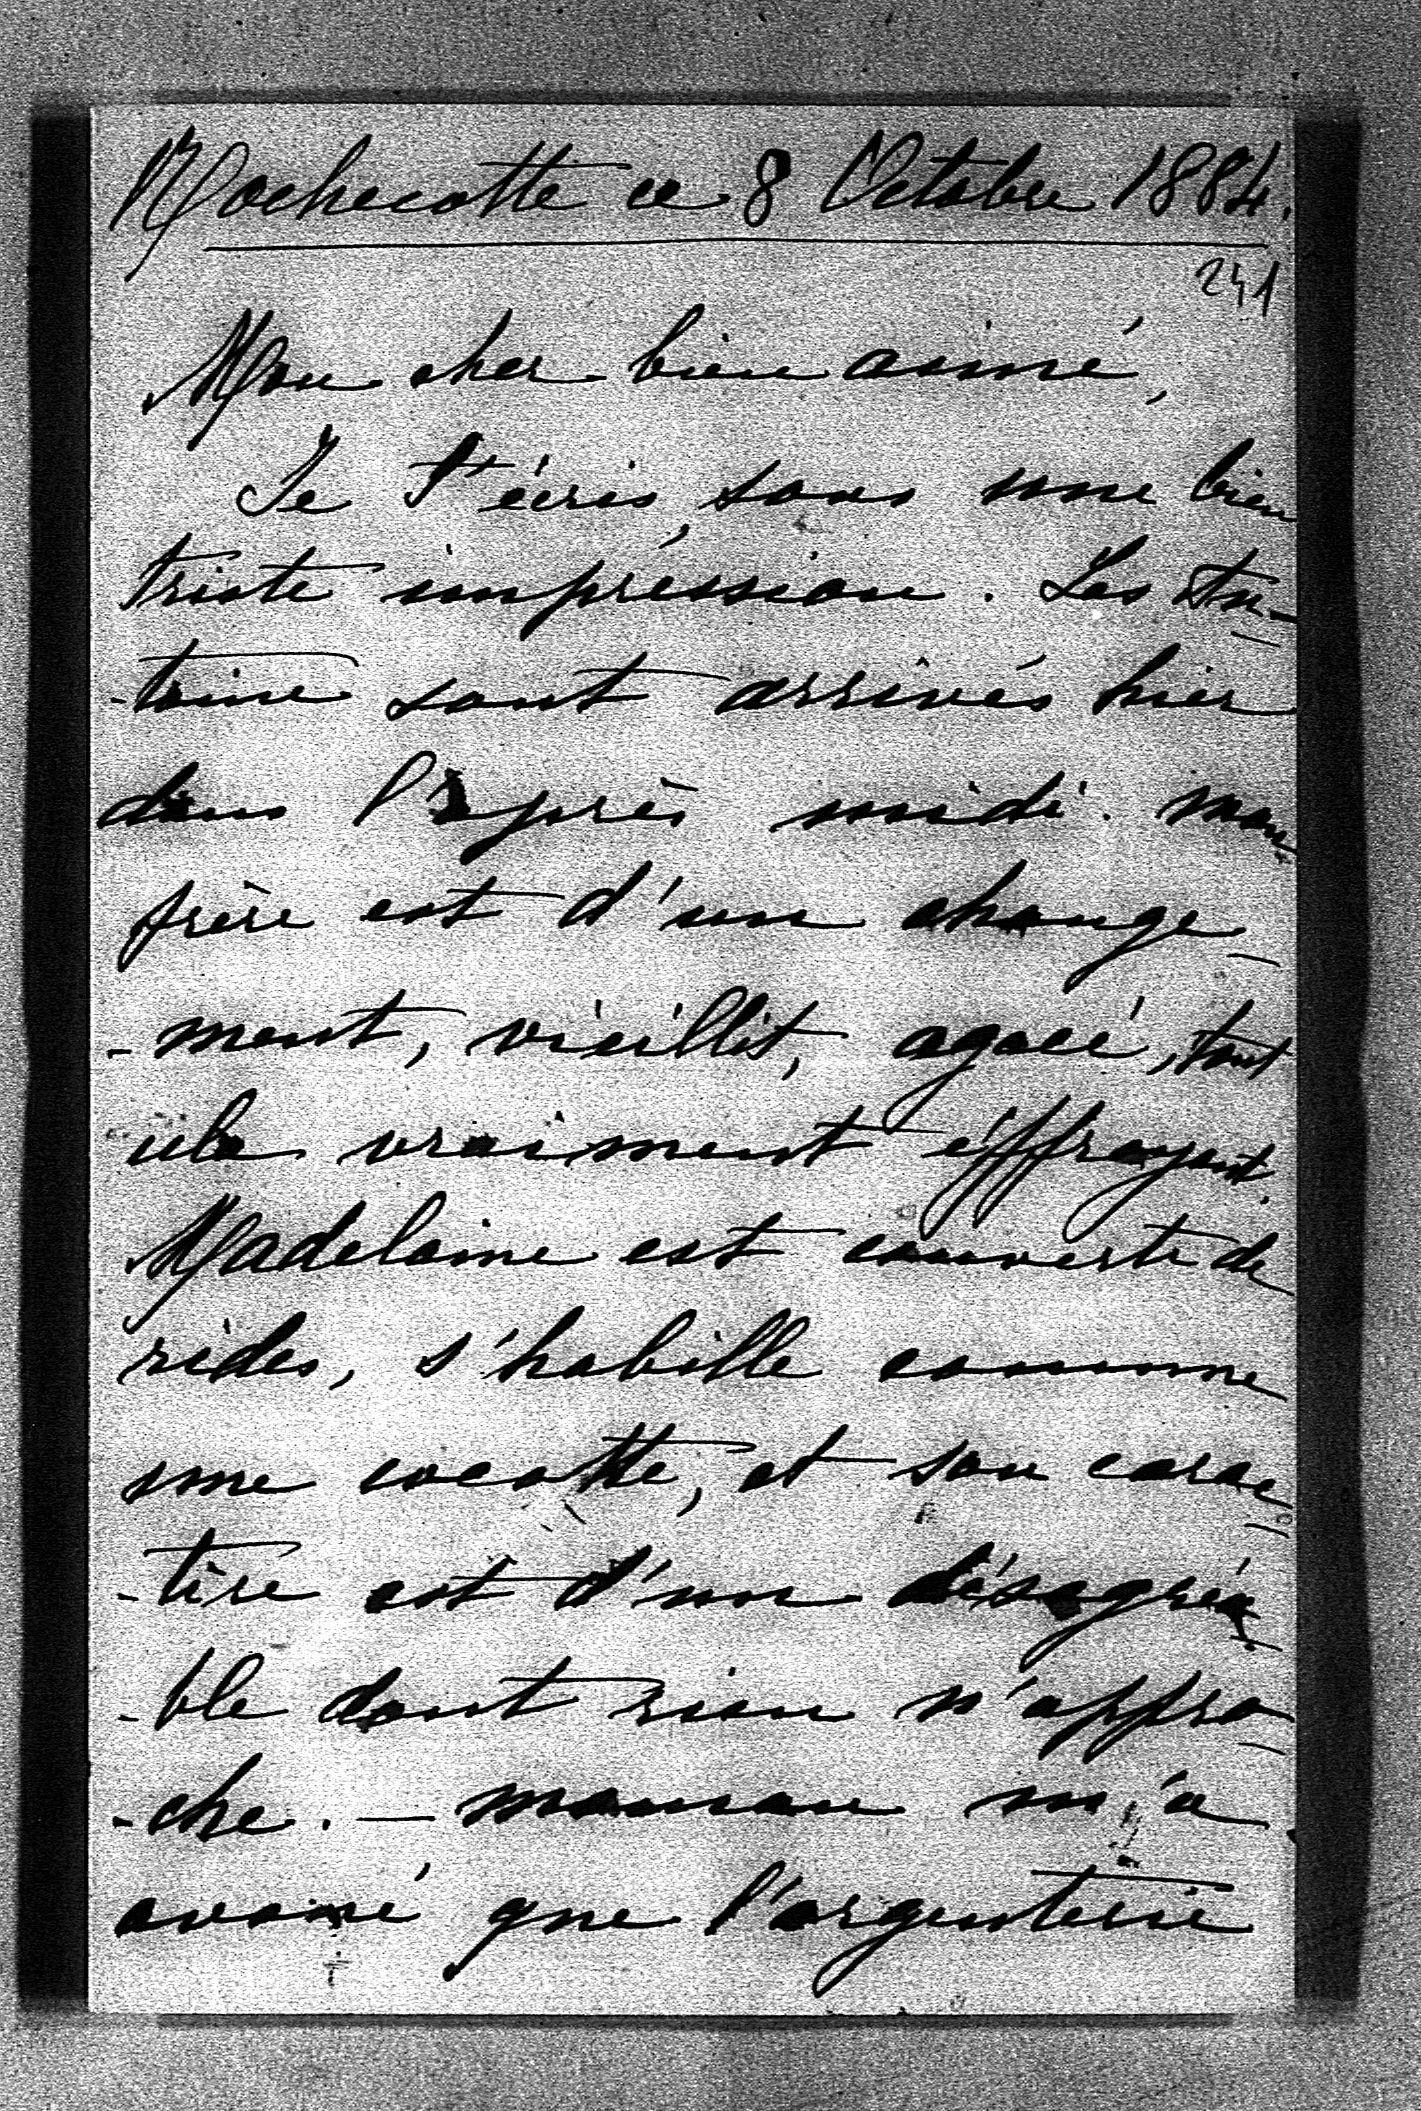 Rochecotte ce 8 Octobre 1884.
241
Mon cher bien aimé,
Je t'écris, sous une bien
triste impréssion. Les An-
-toine sont arrivés hier
dans l'après midi. mon
frère est d'un change-
-ment, vieillit, agacé, tout
cela vraiment éffrayant.
Madelaine est couverte de
rides, s'habille comme
une cocotte, et son carac-
-tère est d'un désagréa-
-ble dont rien n'appro-
-che. — maman m'a
avoué que l'argenterie